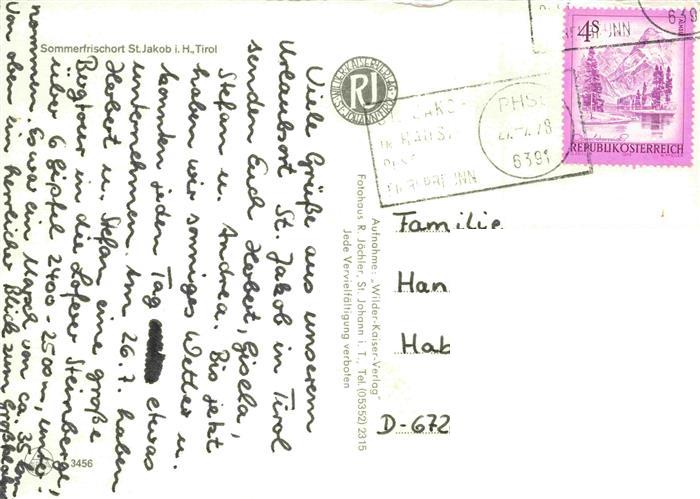 Sommerfrischort St. Jakob i. H., Tirol
Viele Grüße aus unserem
Urlaubsort St. Jakob in Tirol
senden Euch Herbert, Gisela,
Stefan u. Andrea. Bis jetzt
haben wir sonniges Wetter u.
konnten jeden Tag etwas
unternehmen. Am 26.7. haben
Herbert u. Stefan eine große
Bergtour in die Loferer Steinberge,
über 6 Gipfel 2400-2500m, unter-
nommen. Es war ein Marsch von ca. 35 km
Von dem ein herrlicher Blick zum Großglock
3456
RJ
WILDER-KAISER-VERLAG
ST. JOHANN
Aufnahme: „Wilder-Kaiser-Verlag"
Fotohaus R. Jöchler, St. Johann i. T., Tel. (05352) 2315
Jede Vervielfältigung verboten
PHS
27.-7.78
6391
4S
REPUBLIK ÖSTERREICH
639
Familie
Han
Hab
D-672